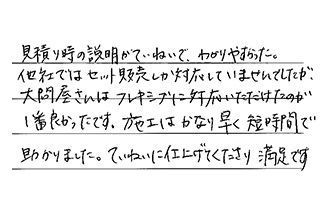 見積り時の説明がていねいで、わかりやすかった。
他社ではセット販売しか対応していませんでしたが、
大問屋さんはフレキシブルに対応いただけたのが
1番良かったです。施工はかなり早く短時間で
助かりました。ていねいに仕上げてくださり満足です